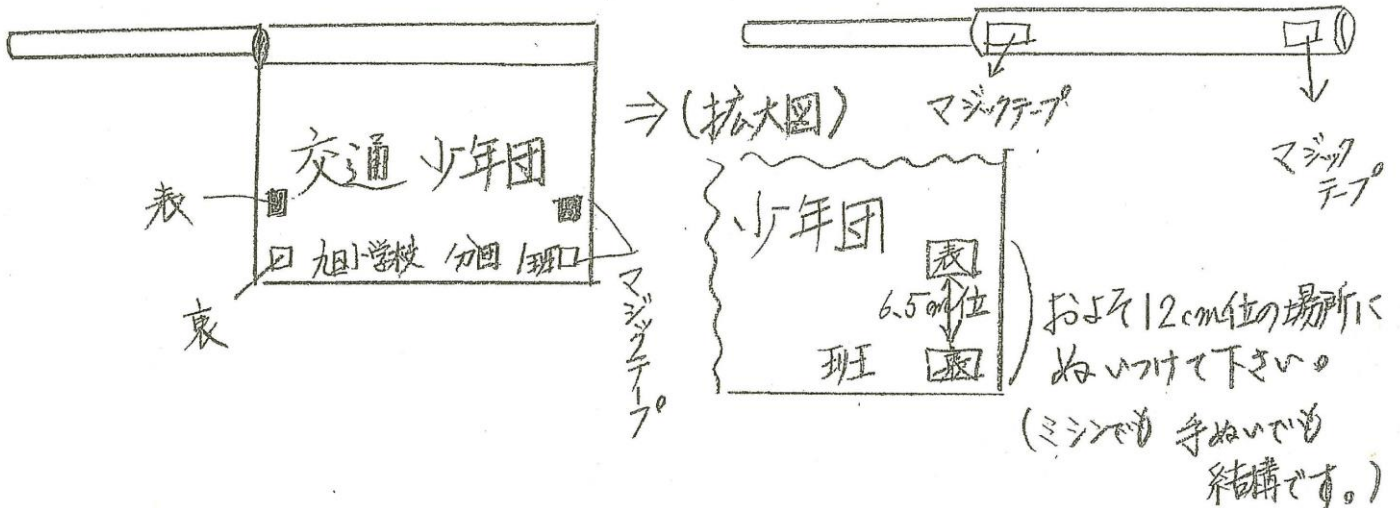 交通 少年団
表
九日小学校 分団 1班
裏
マジックテープ
⇒(拡大図)
マジックテープ
マジック
テープ
少年団
表
6.5cm位
班
およそ12cm位の場所に
ぬいつけて下さい。
(ミシンでも 手ぬいでも
結構です。)